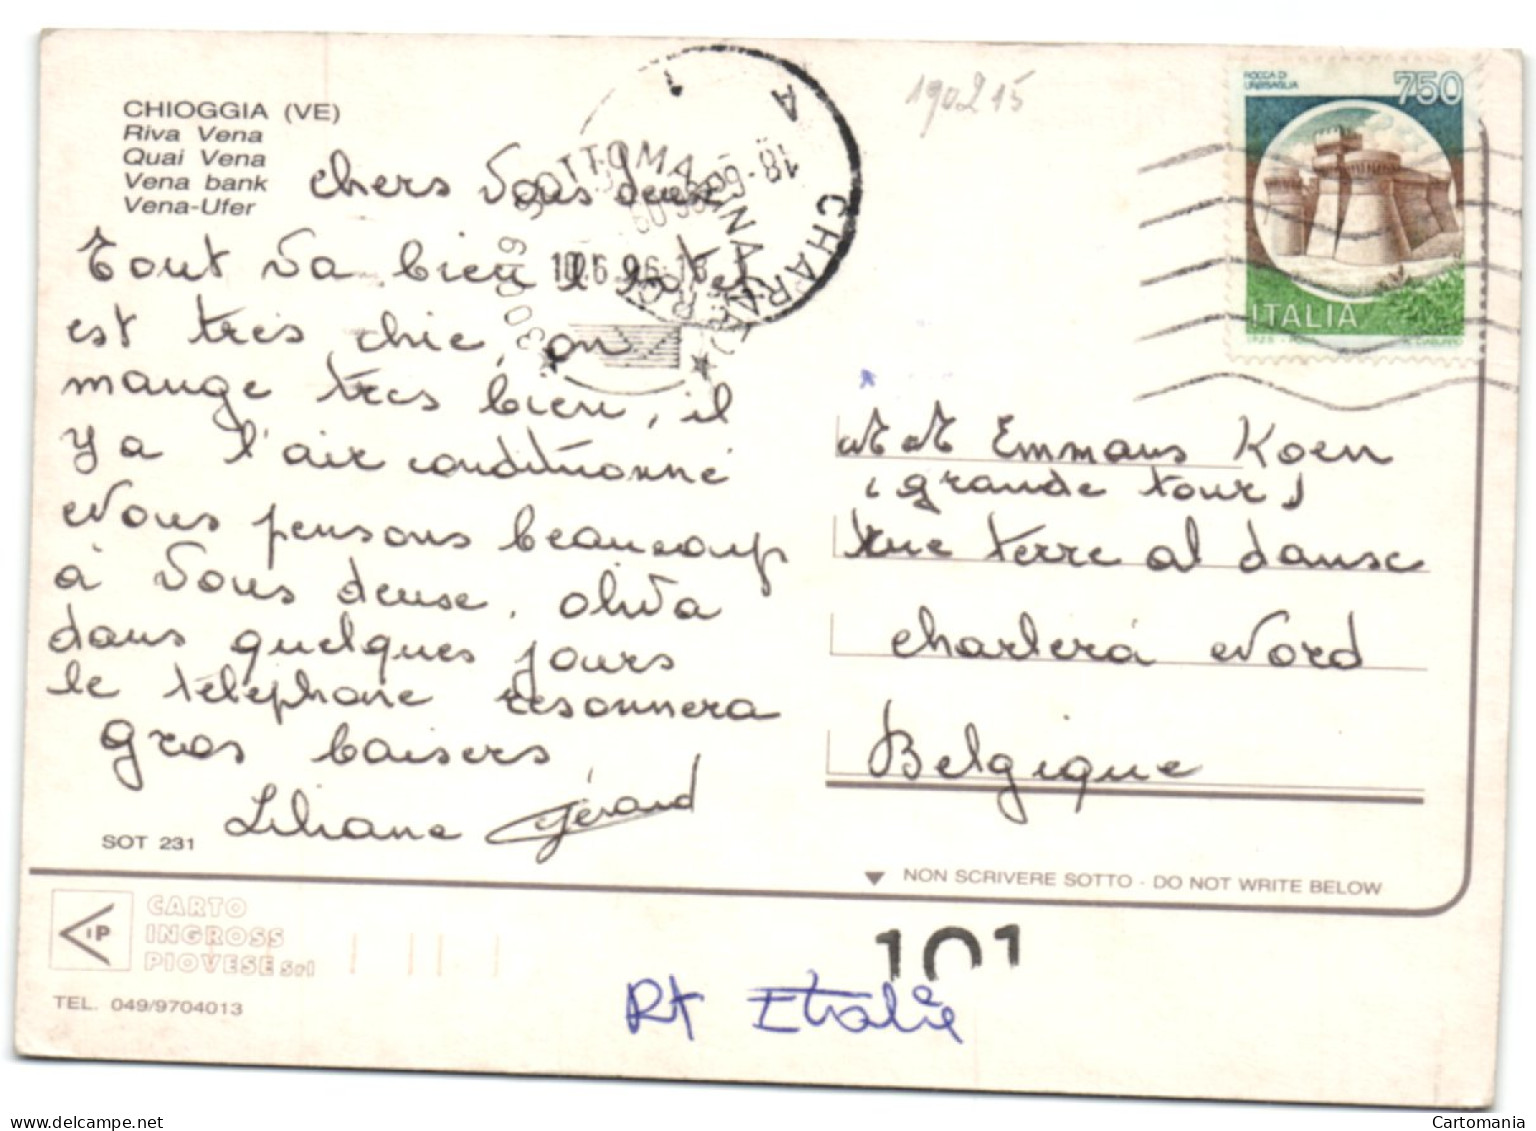 CHIOGGIA (VE)
Riva Vena
Quai Vena
Vena bank
Vena-Ufer
chers Vous deux
Tout Va bien l'hotel
est très chic, on
mange très bien, il
y a l'air conditionné
Nous pensons beaucoup
à Vous deuse,
dans quelques jours
le téléphone resonnera
gros baisers
Liliane Gérard
SOT 231
CARTO
INGROSS
PIOVESE Srl
TEL. 049/9704013
190215
ROCCA DI
URBISAGLIA
750
ITALIA
30019 SOTTOMARINA
10.6.96-18
CHARLEROI
A
1
18-6
Emmaus Koen
(grande tour)
rue terre al danse
charlera Nord
Belgique
NON SCRIVERE SOTTO - DO NOT WRITE BELOW
101
Rt Etalie
Cartomania